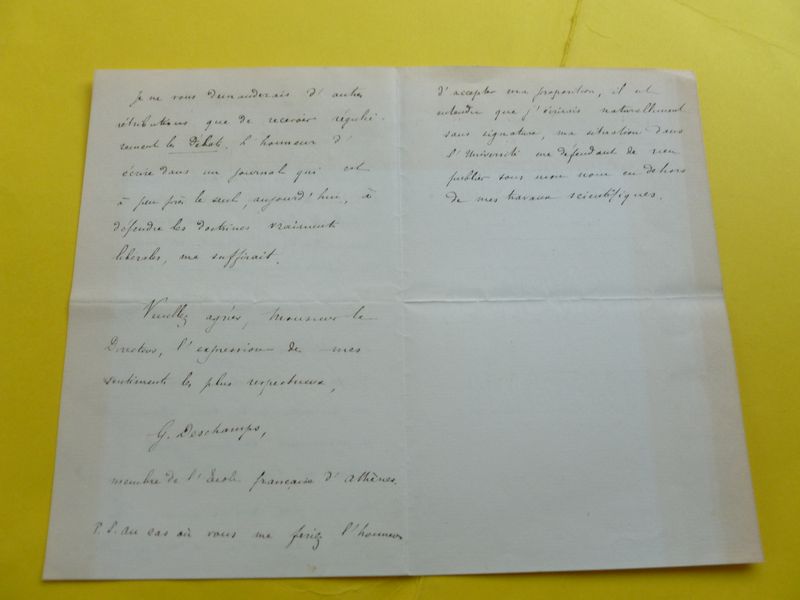 je ne vous demanderais d'autres
rétributions que de recevoir réguliè-
rement les Débats. L'honneur d'
écrire dans un journal qui est
à peu près le seul, aujourd'hui, à
défendre les doctrines vraiment
libérales, me suffirait.
Veuillez agréer, Monsieur le
Directeur, l'expression de mes
sentiments les plus respectueux,
G. Deschamps,
membre de l'École française d'Athènes.
P.S. au cas où vous me feriez l'honneur
d'accepter ma proposition, il est
entendu que j'écrirais naturellement
sans signature, ma situation dans
l'Université me défendant de rien
publier sous mon nom en dehors
de mes travaux scientifiques.